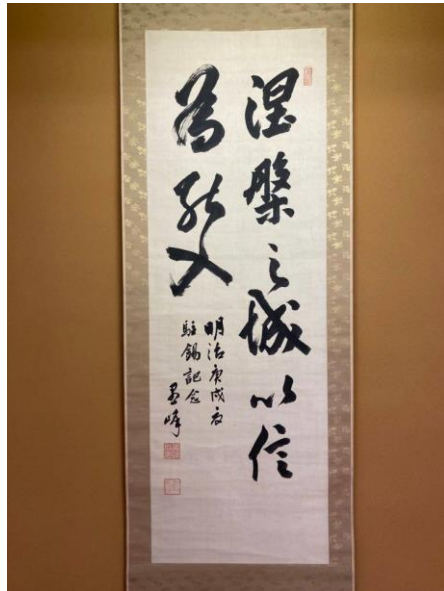 涅槃之城以信
為能入
明治庚戌夏
駐錫記念
峰